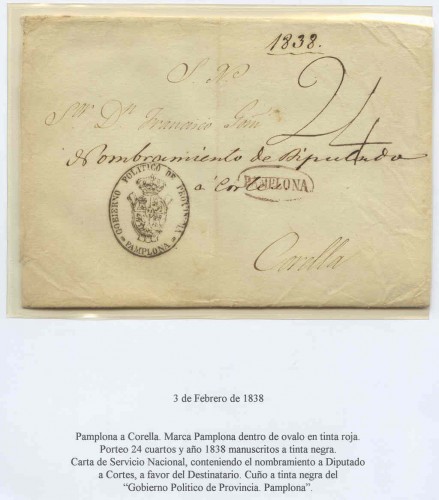 1838.
S. N.
Sr. Dn. Francisco
24
Nombramiento de Diputado
a Cortes
PAMPLONA
GOBIERNO POLITICO DE PROVINCIA
PAMPLONA
Corella
3 de Febrero de 1838
Pamplona a Corella. Marca Pamplona dentro de ovalo en tinta roja.
Porteo 24 cuartos y año 1838 manuscritos a tinta negra.
Carta de Servicio Nacional, conteniendo el nombramiento a Diputado
a Cortes, a favor del Destinatario. Cuño a tinta negra del
“Gobierno Politico de Provincia. Pamplona”.